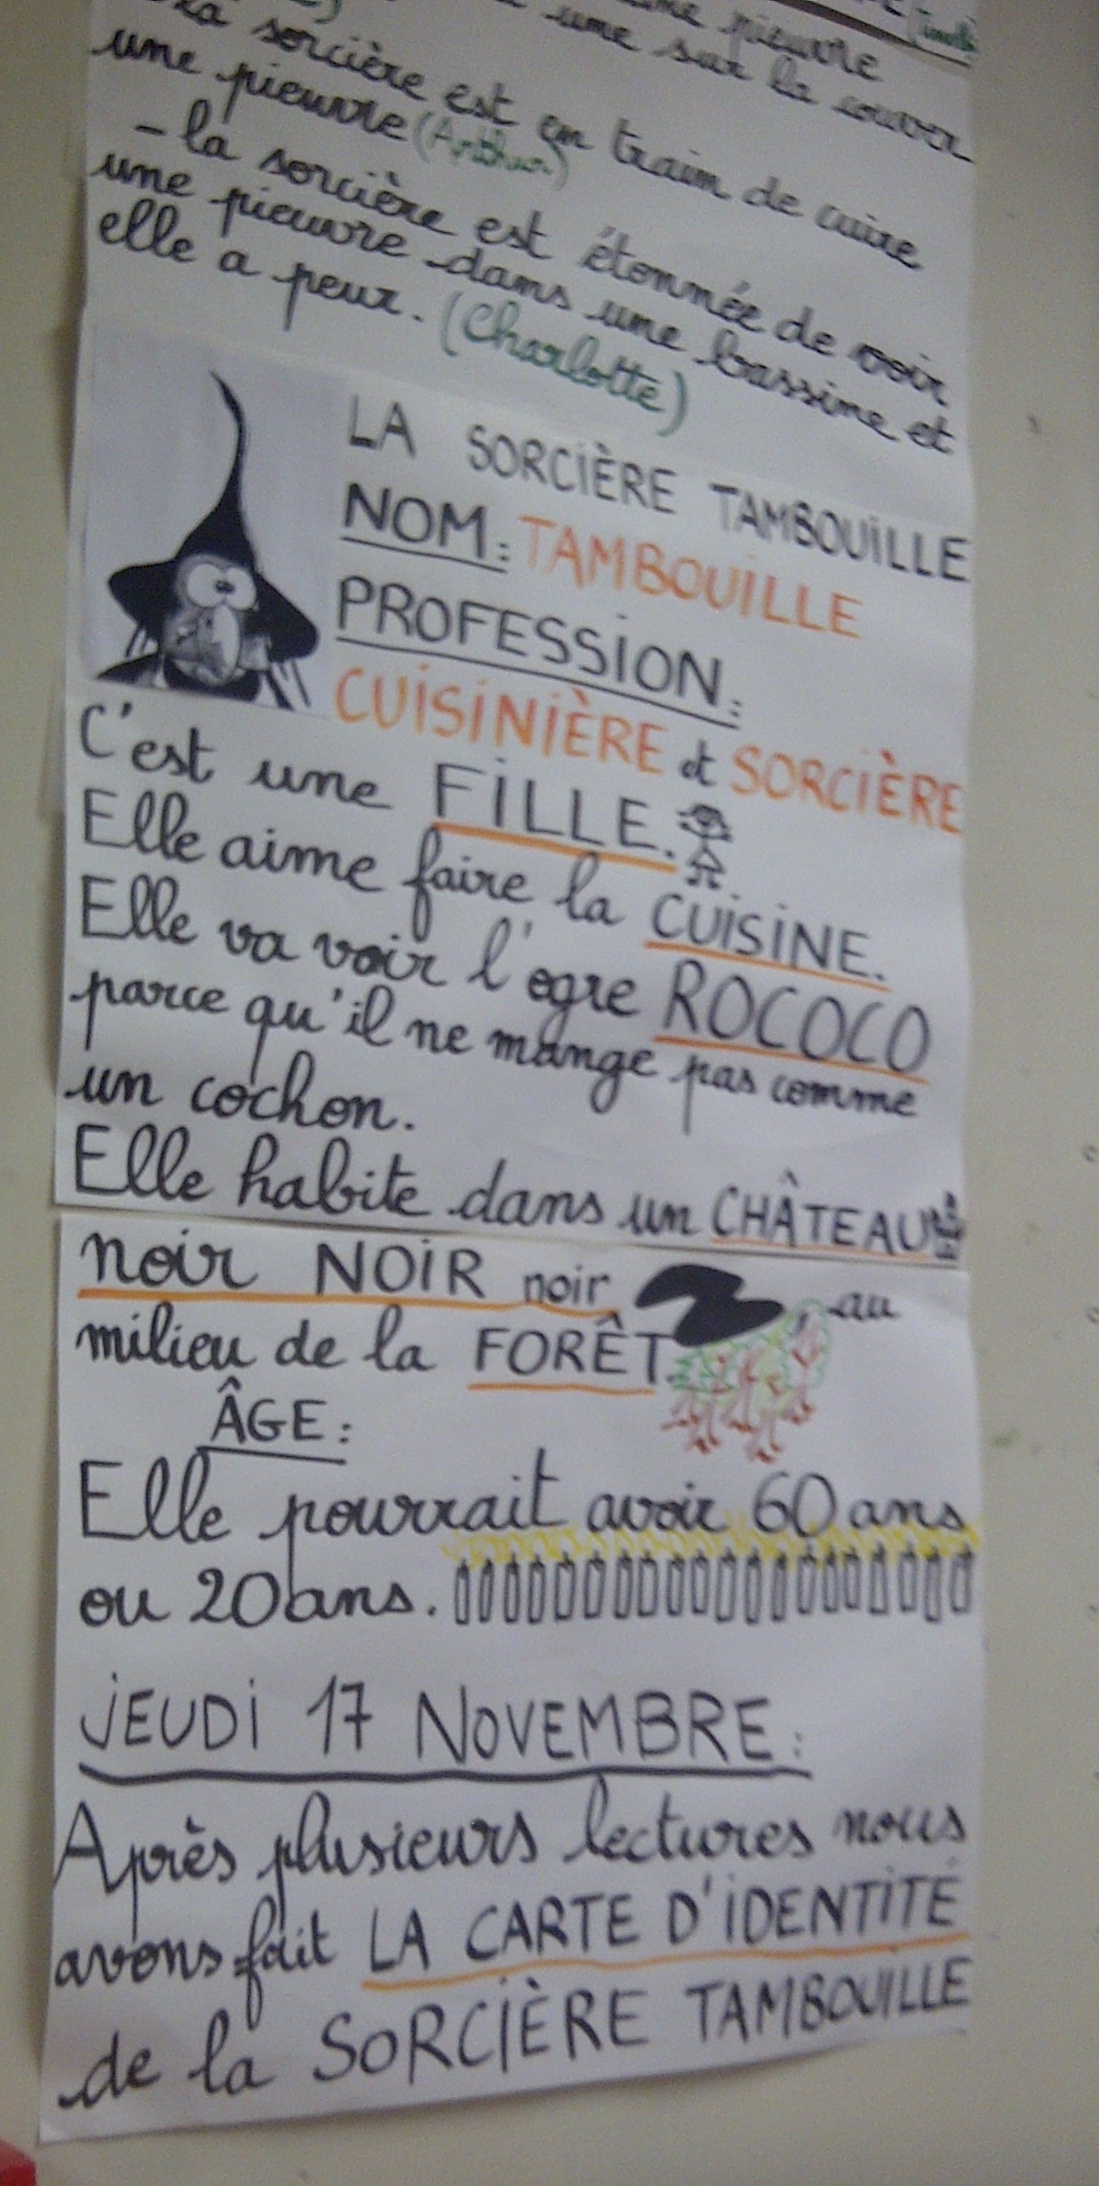 une pieuvre
une sur la couver
la sorcière est en train de cuire
une pieuvre (Arthur)
- la sorcière est étonnée de voir
une pieuvre dans une bassine et
elle a peur. (Charlotte)
LA SORCIÈRE TAMBOUILLE
NOM: TAMBOUILLE
PROFESSION:
CUISINIÈRE et SORCIÈRE
C'est une FILLE.
Elle aime faire la CUISINE.
Elle va voir l'ogre ROCOCO
parce qu'il ne mange pas comme
un cochon.
Elle habite dans un CHÂTEAU
noir NOIR noir au
milieu de la FORÊT.
ÂGE:
Elle pourrait avoir 60 ans
ou 20 ans.
JEUDI 17 NOVEMBRE:
Après plusieurs lectures nous
avons fait LA CARTE D'IDENTITÉ
de la SORCIÈRE TAMBOUILLE